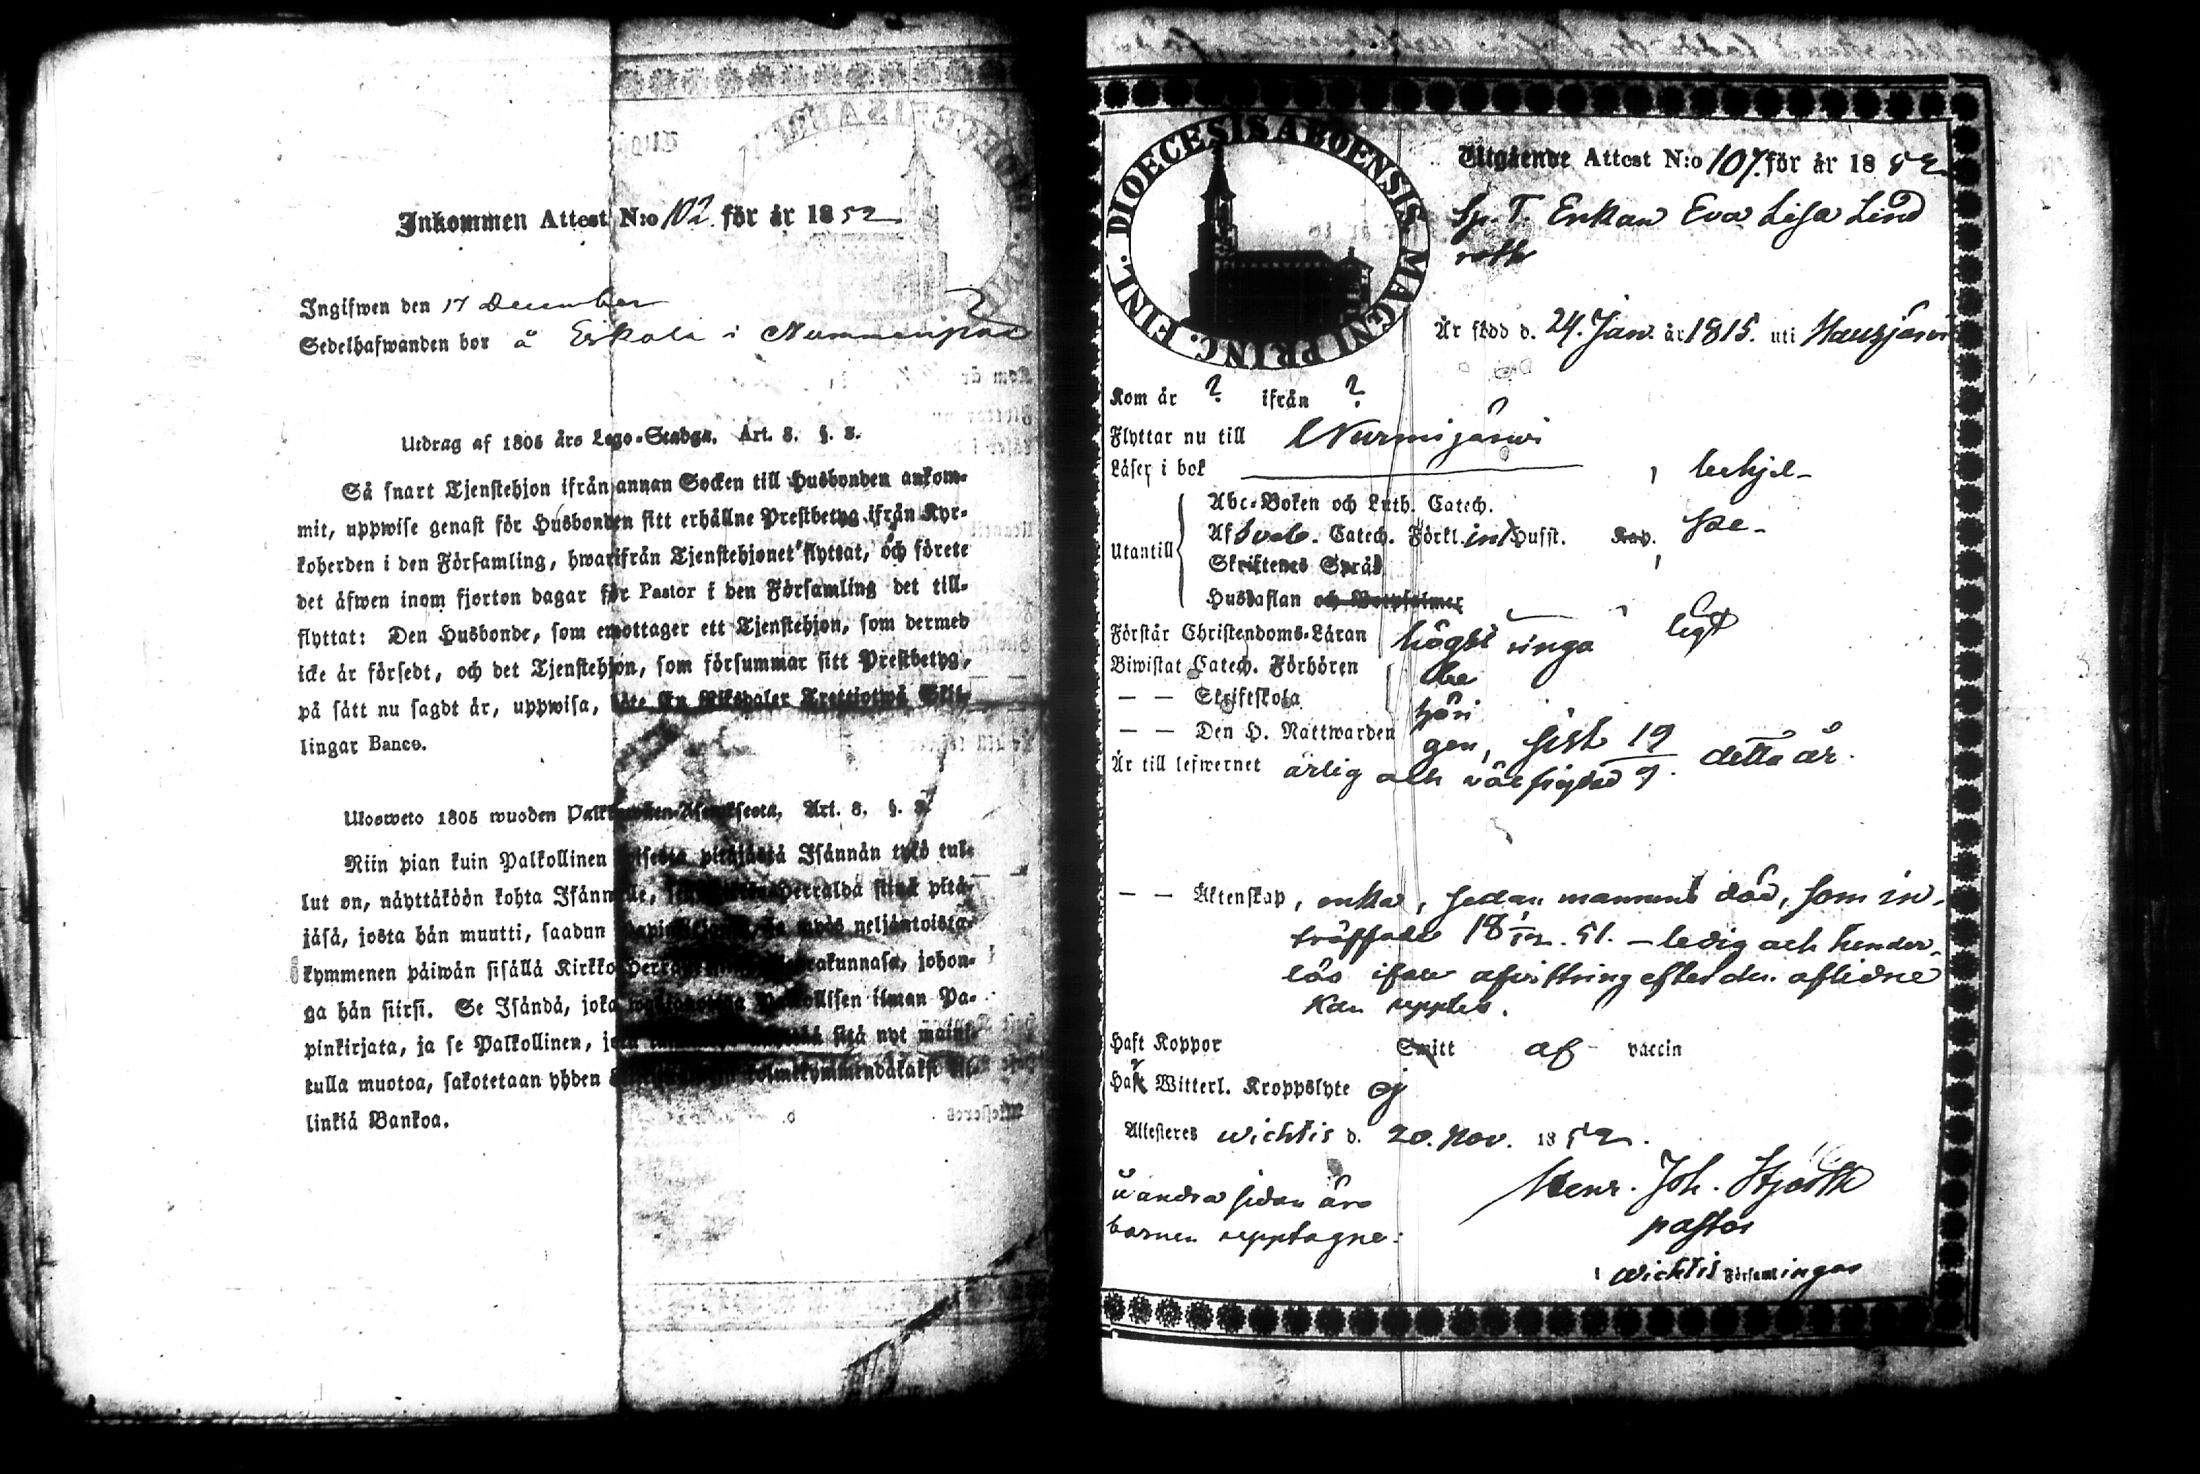 Inkommen Attest N:o 102 för år 1852
Ingifwen den 17 December
Sedelhafwanden bor å Eskola i Nummenpää
Utdrag af 1805 års Lego-Stadga. Art. 8. §. 8.
Så snart Tjenstehjon ifrån annan Socken till Husbonden ankom-
mit, uppwise genast för Husbonden sitt erhållne Prestbetyg ifrån Kyr-
koherden i den Församling, hwarifrån Tjenstehjonet flyttat, och förete
det äfwen inom fjorton dagar för Pastor i den Församling det till-
flyttat: Den Husbonde, som emottager ett Tjenstehjon, som dermed
icke är försedt, och det Tjenstehjon, som försummar sitt Prestbetyg,
på sätt nu sagdt är, uppwisa, böte En Riksdaler Trettiotwå Skil-
lingar Banco.
Ulosweto 1805 wuoden Art. 8. §. 8.
Niin pian kuin Palkollinen toisesta pitäjästä Isännän tykö tul-
lut on, näyttäköön kohta Isännälle, Kirkkoherralda siinä pitä-
jäsä, josta hän muutti, saadun ja myös neljäntoista-
kymmenen päiwän sisällä Kirkkoherralle Seurakunnasa, johon-
ga hän siirsi. Se Isändä, joka Palkollisen ilman Pa-
pinkirjata, ja se Palkollinen, joka sitä nyt maini-
tulla muotoa, sakotetaan yhden kolmekymmendäkaksi kil-
linkiä Bankoa.
DIOECESIS ABOENSIS MAGNI PRINC. FINL.
Utgående Attest N:o 107 för år 1852
Sp. T. Enkan Eva Lisa Lind
roth
Är född d. 24. Jan. år 1815. uti Hausjärvi
Kom år ? ifrån ?
Flyttar nu till Nurmijärvi
Läser i bok behjel-
Abc-Boken och Luth. Catech.
Utantill Af Sveb. Catech. Förkl. int. Husst. Kap. ske-
Skriftenes Språk
Hustaflan och Botpsalmer
Förstår Christendoms-Läran högst ringa ligt
Biwistat Catech. Förhören be
— — Skriftskola höri
— — Den H. Nattwarden gen, sist 19/9. detta år.
Är till lefwernet ärlig och väl frejdad
— — Äktenskap, enka, sedan mannens död, som in-
träffade 18 1/12. 51. – ledig och hinder-
lös ifall afvittring efter den aflidne
kan upptes.
Haft Koppor Smitt af vaccin
Haft Witterl. Kroppslyte ej
Attesteras Wichtis d. 20. Nov. 1852.
Henr. Joh. Hjorth
pastor
i Wichtis Församlingar
å andra sidan äro
barnen upptagne.